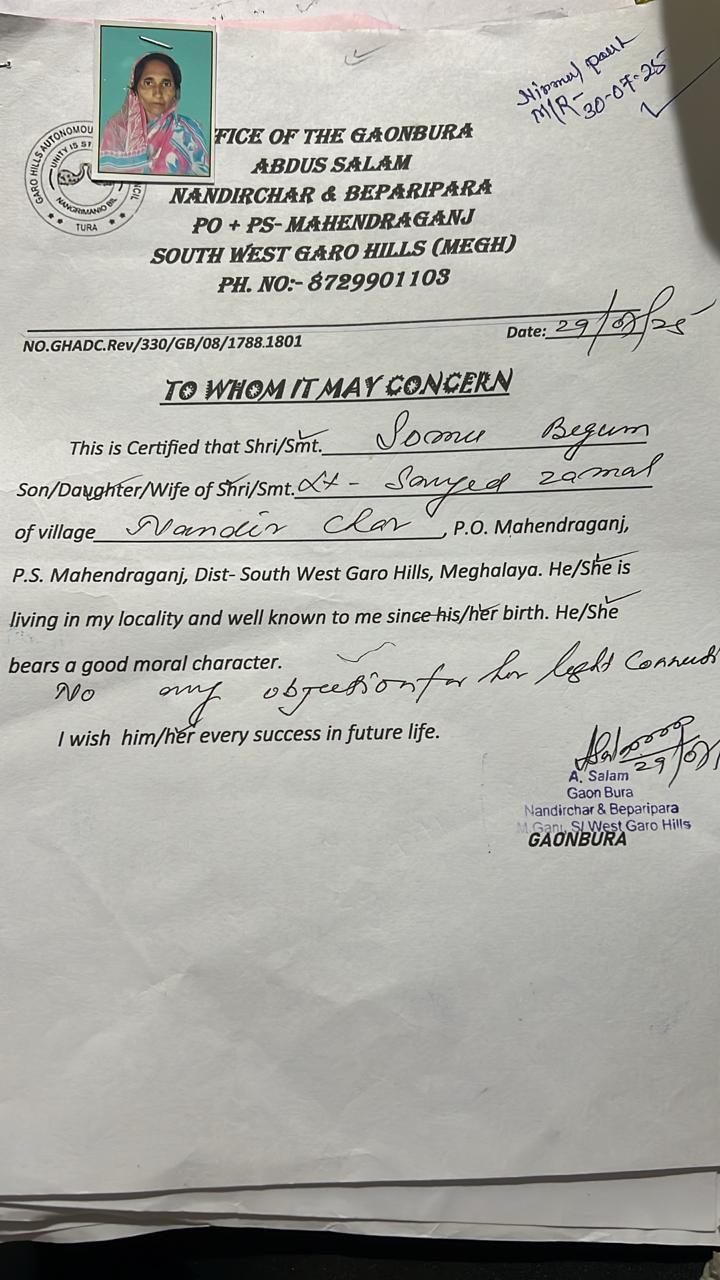 Nirmal paul
M/R-
30-07-25
FICE OF THE GAONBURA
ABDUS SALAM
NANDIRCHAR & BEPARIPARA
PO + PS- MAHENDRAGANJ
SOUTH WEST GARO HILLS (MEGH)
PH. NO:- 8729901103
GARO HILLS AUTONOMOU CIL
UNITY IS ST
TURA
NO.GHADC.Rev/330/GB/08/1788.1801
Date: 29/07/25
TO WHOM IT MAY CONCERN
This is Certified that Shri/Smt. Somu Begum
Son/Daughter/Wife of Shri/Smt. Lt - Sayed zamal
of village Nandir Char, P.O. Mahendraganj,
P.S. Mahendraganj, Dist- South West Garo Hills, Meghalaya. He/She is
living in my locality and well known to me since his/her birth. He/She
bears a good moral character.
No any objection for her light Connecti
I wish him/her every success in future life.
29/07
A. Salam
Gaon Bura
Nandirchar & Beparipara
M.Ganj, S/ West Garo Hills
GAONBURA